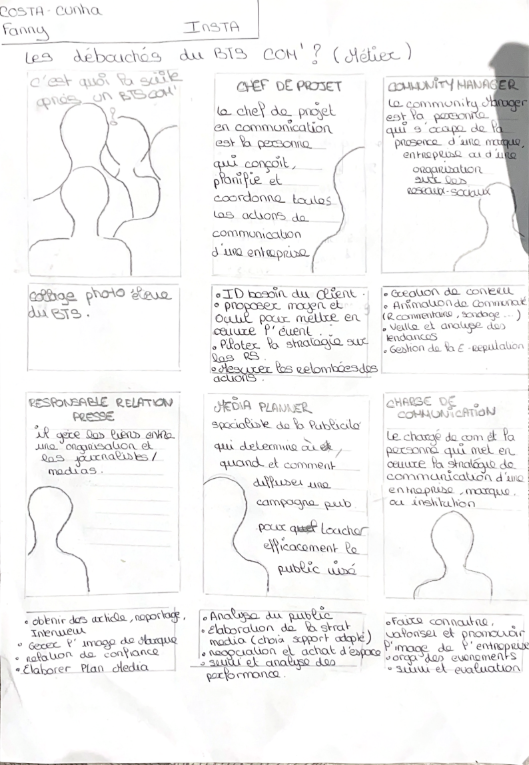 COSTA-Cunha
Fanny
INSTA
Les débouchés du BTS COM'? (Métier)
C'est quoi la suite
après un BTS COM'
?
collage photo élève
du BTS.
CHEF DE PROJET
Le chef de projet
en communication
est la personne
qui conçoit,
planifie et
coordonne toutes
les actions de
communication
d'une entreprise
• ID besoin du client.
• proposer moyen et
outil pour mettre en
œuvre l'évent.
• Piloter la stratégie sur
les RS.
• Mesurer les retombées des
actions.
COMMUNITY MANAGER
Le community Manager
est la personne
qui s'occupe de la
présence d'une marque,
entreprise ou d'une
organisation
sur les
réseaux-sociaux
• Création de contenu
• Animation de communauté
(R commentaire, sondage...)
• Veille et analyse des
tendances
• Gestion de la E-reputation
RESPONSABLE RELATION
PRESSE
il gère les liens entre
une organisation et
les journalistes/
médias.
• obtenir des article, reportage,
Interview
• Gérer l'image de Marque
• relation de confiance
• Élaborer Plan Media
MEDIA PLANNER
specialiste de la Publicité
qui determine où et,
quand et comment
diffuser une
campagne pub
pour toucher
efficacement le
public visé
• Analyse du public
• Élaboration de la strat
media (choix support adapté)
• négociation et achat d'espace
• suivi et analyse des
performance.
CHARGE DE
COMMUNICATION
Le chargé de com et la
personne qui met en
œuvre la stratégie de
communication d'une
entreprise, marque.
ou institution
• Faire connaitre,
valoriser et promouvoir
l'image de l'entreprise
• orga des evenements
• suivi et evaluation